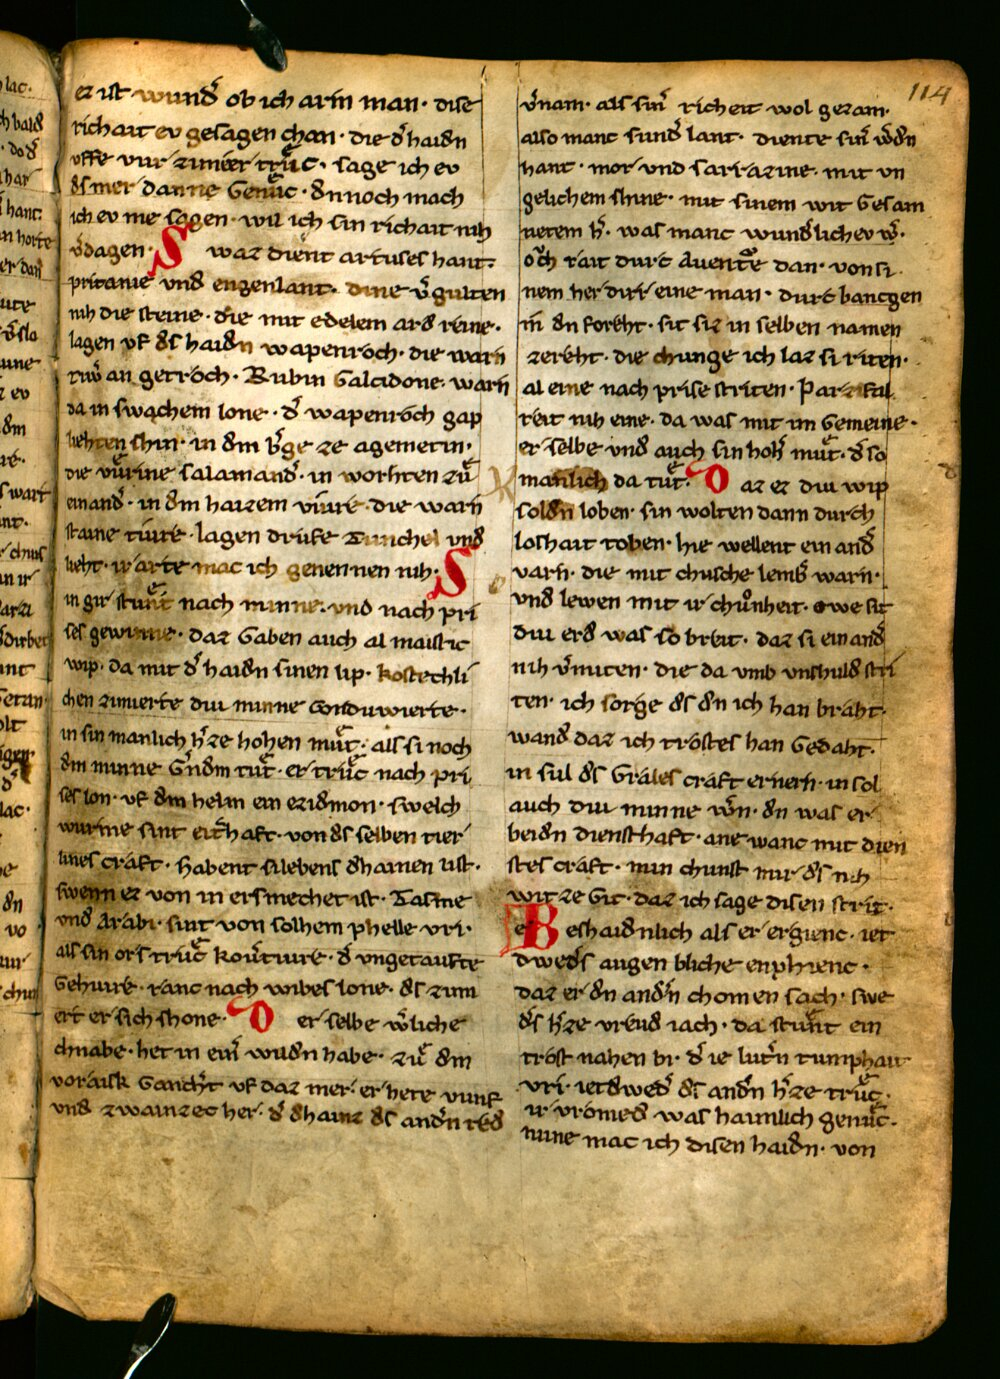 114
ez ist wundˢ ob ich arm man · dise
richait ev gesagen chan · die dˢ haidn
uffe vur zimier trůc · sage ich ev
ds mer danne genůc · dn noch mach
ich ev me sagen · wil ich sin richait nih
vˢdagen · S waz dient artuses hant ·
pritanie und engenlant · dine vˢgulten
nih die steine · die mit edelem ard reine ·
lagen uf ds haidn wapenroch · die warn
tiwˢ an getroch · Rubin Calcidone · warn
da in swachem lone · dˢ wapenroch gap
liehten shin · in dm bˢge ze agemetin ·
die vůrine salamandˢ · in worhten zů
ein andˢ · in dm haizem viure · die warn
staine tiure · lagen druffe Tunchel und
lieht · ir arte mac ich genennen nih · S
in gir stůnt nach minne · und nach pri
ses gewinne · daz gaben auch al maistic
wip · da mit dˢ haidn sinen lip · kostechli
chen zimierte diu minne conduwierte ·
in sin manlich hˢze hohen můt · als si noch
dm minne gˢndm tůt · er trůc nach pri
ses lon · uf dm helm ein ezidmon · swelch
wurme sint eithaft · von ds selben tier
lines craft · habent si lebens dhainen list ·
swenn ez von in ersmechet ist · Tasme
und Arabi · sint von solhem phelle vri ·
als sin ors trůc kovˢtiure · dˢ ungetaufte
gehuire · ranc nach wibes lone · ds zim
ert er sich shone · D er selbe wˢliche
chnabe · het in einˢ wildn habe · zů dm
voraisk gancht uf daz mer · er hete vunf
und zwainzec her · dˢ dhainz ds andˢn red
vˢnam · als sinˢ richeit wol gezam ·
also manc sundˢ lant · diente sinˢ wˢdn
hant · mor und sarrazine · mit un
gelichem shine · mit sinem wit gesam
netem hˢ · was manc wundˢlich ev wˢ ·
och rait durc Aventůe dan · von si
nem her diri eine man · durc banegen
in dn foreht · sit siz in selben namen
zereht · die chunge ich laz si riten ·
al eine nach prise striten · Parzifal
reit nih eine · da was mit im gemeine ·
er selbe und auch sin hohˢ můt · dˢ so
manlich da tůt · D az ez diu wip
soldn loben · sin wolten dann durch
loshait toben · hie wellent ein andˢ
varn · die mit chusche lembˢ warn ·
und lewen mit ir chůnheit · owe sit
diu erd was so breit · daz si ein andˢ
nih vˢmiten · die da umb unshuld stri
ten · ich sorge ds dn ich han braht ·
wandˢ daz ich trostes han gedaht ·
in sul ds Grales craft ernern · in sol
auch diu minne wˢn · dn was er
beidn diensthaft · ane wanc mit dien
stes craft · min chunst mir ds nih
witze git · daz ich sage disen strit ·
B eshaidnlich als er ergienc · iet
dwedˢs augen bliche enphienc ·
daz er dn andˢn chomen sach · swe
dˢs hˢze vreud iach · da stůnt ein
trost nahen bi · dˢ ie lutˢn tumphait
vri · ietdwedˢ ds andˢn hˢze trůc ·
ir vromed was haimlich genůc ·
nune mac ich disen haidn · von